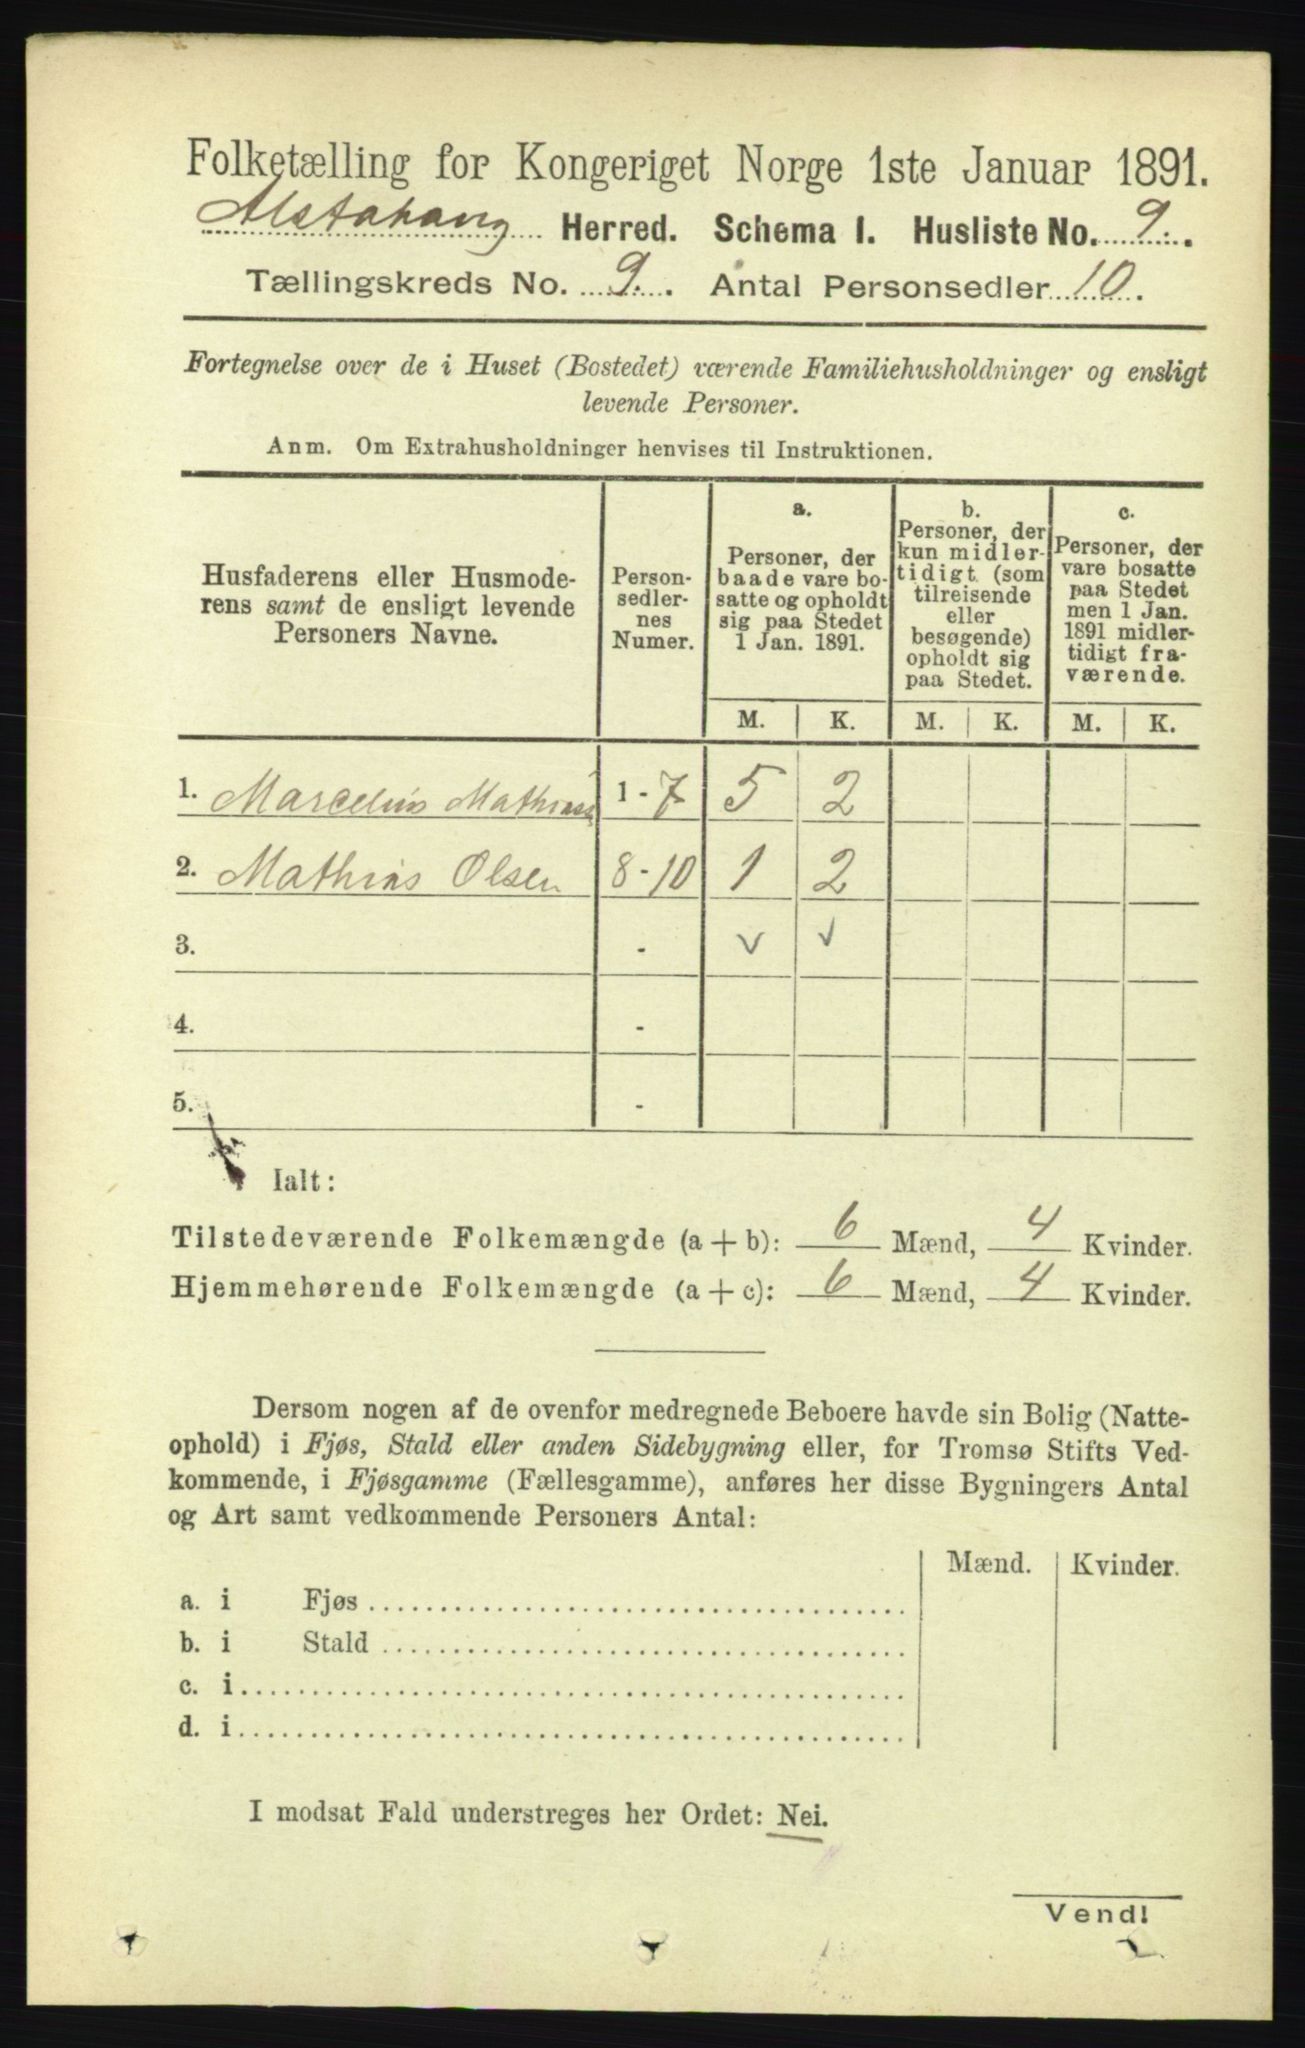 Folketælling for Kongeriget Norge 1ste Januar 1891.
Alstahaug Herred. Schema I. Husliste No. 9.
Tællingskreds No. 9. Antal Personsedler 10.
Fortegnelse over de i Huset (Bostedet) værende Familiehusholdninger og ensligt
levende Personer.
Anm. Om Extrahusholdninger henvises til Instruktionen.
Husfaderens eller Husmode-
rens samt de ensligt levende
Personers Navne.
Person-
sedler-
nes
Numer.
a.
Personer, der
baade vare bo-
satte og opholdt
sig paa Stedet
1 Jan. 1891.
b.
Personer, der
kun midler-
tidigt (som
tilreisende
eller
besøgende)
opholdt sig
paa Stedet.
c.
Personer, der
vare bosatte
paa Stedet
men 1 Jan.
1891 midler-
tidigt fra-
værende.
M. K. M. K. M. K.
1. Marcelius 1-7 5 2
2. Mathias Olsen 8-10 1 2
3. - v v
4. -
5. -
Ialt:
Tilstedeværende Folkemængde (a + b): 6 Mænd, 4 Kvinder.
Hjemmehørende Folkemængde (a + c): 6 Mænd, 4 Kvinder.
Dersom nogen af de ovenfor medregnede Beboere havde sin Bolig (Natte-
ophold) i Fjøs, Stald eller anden Sidebygning eller, for Tromsø Stifts Ved-
kommende, i Fjøsgamme (Fællesgamme), anføres her disse Bygningers Antal
og Art samt vedkommende Personers Antal:
Mænd. Kvinder.
a. i Fjøs
b. i Stald
c. i
d. i
I modsat Fald understreges her Ordet: Nei.
Vend!